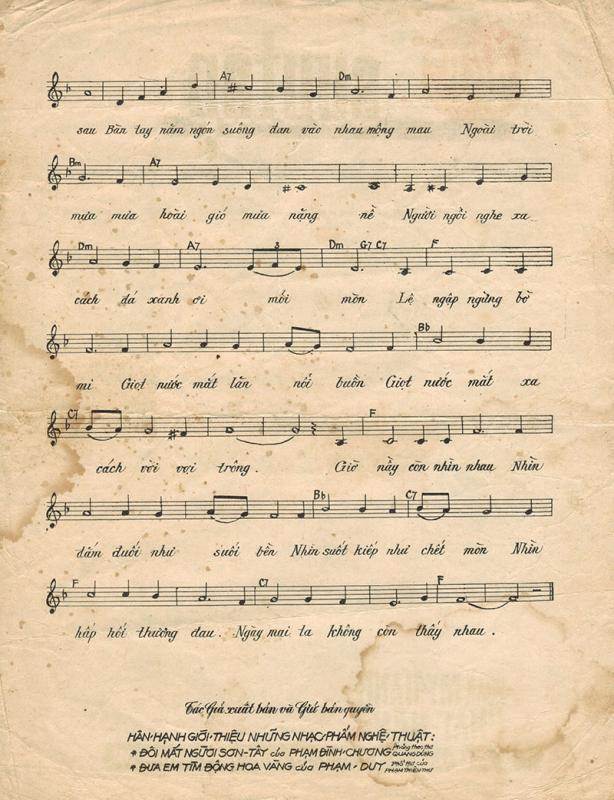 A7 Dm
sau Bàn tay năm ngón suông đan vào nhau mộng mau Ngoài trời
Bm A7
mưa mưa hoài gió mưa nặng nề Người ngồi nghe xa
Dm A7 3 Dm G7 C7 F
cách đá xanh ơi mỏi mòn Lệ ngập ngừng bờ
Bb
mi Giọt nước mắt lăn nỗi buồn Giọt nước mắt xa
C7 F
cách vời vợi trông. Giờ nầy còn nhìn nhau Nhìn
Bb C7
đắm đuối như suối bền Nhìn suốt kiếp như chết mòn Nhìn
F C7 F
hấp hối thương đau. Ngày mai ta không còn thấy nhau.
Tác Giả xuất bản và Giữ bản quyền
HÂN·HẠNH GIỚI·THIỆU NHỮNG NHẠC·PHẨM NGHỆ·THUẬT:
* ĐÔI MẮT NGƯỜI SƠN·TÂY của PHẠM ĐÌNH·CHƯƠNG phỏng theo thơ QUANG DŨNG
* ĐƯA EM TÌM ĐỘNG HOA VÀNG của PHẠM·DUY PHỔ THƠ của PHẠM THIÊN THƯ